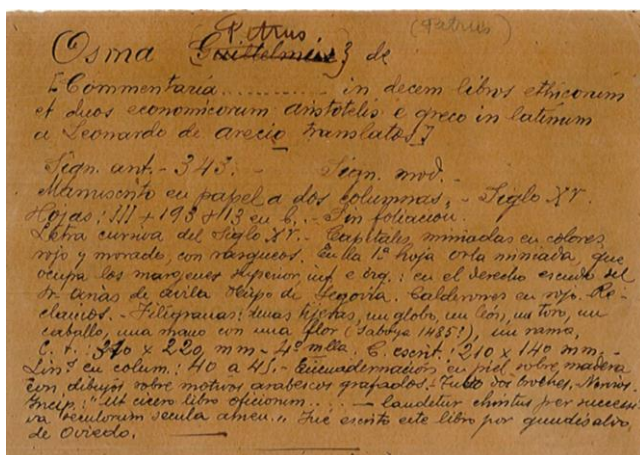 Petrus (Petrus)
Osma {Guillelmus} de
[Commentaria .......... in decem libros ethicorum
et duos economicorum aristotelis e greco in latinum
a Leonardo de arecio translatos]
Sign. ant. - 343. - Sign. mod. -
Manuscrito en papel a dos columnas. - Siglo XV.
Hojas: III + 193 + 13 en b. - Sin foliacion.
Letra cursiva del Siglo XV. - Capitales miniadas en colores
rojo y morado, con rasgueos. En la 1ª hoja orla miniada, que
ocupa los margenes superior, inf. e izq.: en el derecho escudo del
Sr. arias de avila Obispo de Segovia. Calderones en rojo. Re-
clamos. - Filigranas: unas tijeras, un globo, un león, un toro, un
caballo, una mano con una flor (Saboya 1485?), un ramo,
C. t.: 310 x 220, mm - 4º mlla. C. escrit.: 210 x 140 mm. -
Lin.s en colum.: 40 a 45. - Encuadernacion en piel sobre madera
con dibujos sobre motivos arabescos grafados. - Tuvo dos broches. Nervios.
Incip.: "Ut cicero libro oficiorum ...... - laudetur christus per
va seculorum secula amen." Fué escrito este libro por gundisalvo,
de Oviedo.